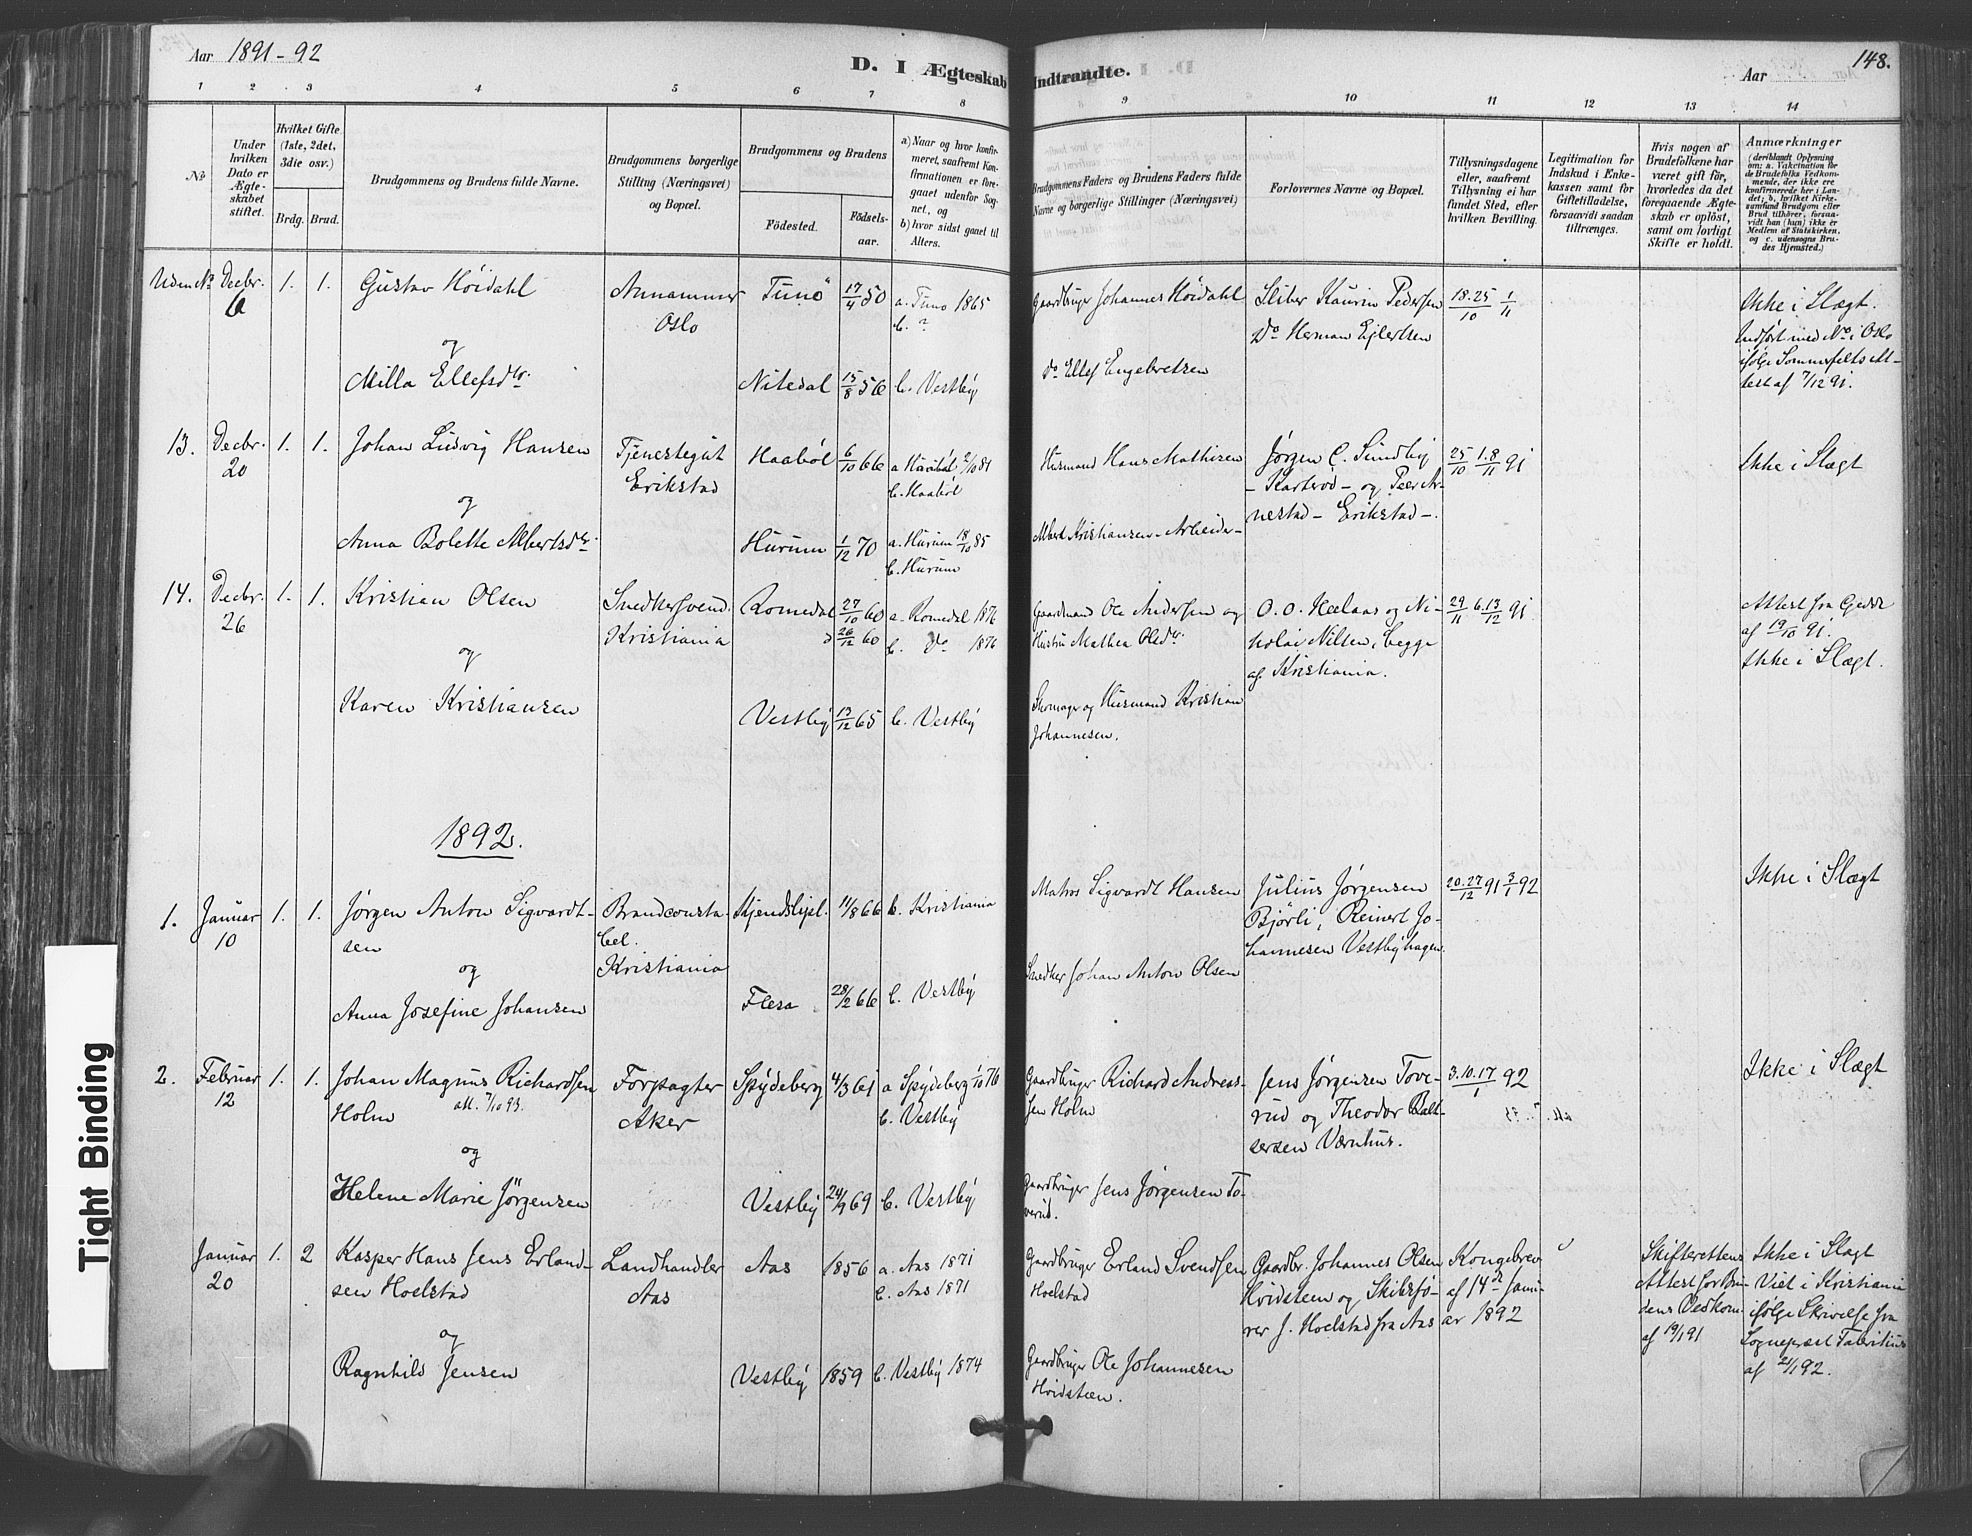 Aar 1891-92
D. I Ægteskab Indtraadte.
Aar
148.
1 2 3 4 5 6 7 8 9 10 11 12 13 14
No
Under hvilken Dato er Ægteskabet stiftet.
Hvilket Gifte (1ste, 2det, 3die osv.)
Brdg. Brud.
Brudgommens og Brudens fulde Navne.
Brudgommens borgerlige Stilling (Næringsvei) og Bopæl.
Brudgommens og Brudens
Födested.
Födselsaar.
a) Naar og hvor konfirmeret, saafremt Konfirmationen er foregaaet udenfor Sognet, og
b) hvor sidst gaaet til Alters.
Brudgommens Faders og Brudens Faders fulde Navne og borgerlige Stillinger (Næringsvei)
Forlovernes Navne og Bopæl.
Tillysningsdagene eller, saafremt Tillysning ei har fundet Sted, efter hvilken Bevilling.
Legitimation for Indskud i Enkekassen samt for Giftetilladelse, forsaavidt saadan tiltrænges.
Hvis nogen af Brudefolkene har været gift för, hvorledes da det foregaaende Ægteskab er oplöst, samt om lovligt Skifte er holdt.
Anmærkninger
(deriblandt Oplysning om: a. Vakcination for de Brudefolks Vedkommende, der ikke ere konfirmerede her i Landet; b. hvilket Kirkesamfund Brudgom eller Brud tilhörer, forsaavidt han (hun) ikke er Medlem af Statskirken, og c. udensogns Brudes Hjemsted.)
Uden No Decbr. 6 1. 1. Gustav Höidahl
Oslo
Tunö 17/4 50 a. Tunö 1865
b. ?
Gaardbruger Johannes Höidahl
Sliber Kaurin Pedersen
Do Herman Ejlertsen
18.25/10 1/11
Ikke i Slægt.
Indført med No i Oslo
ifølge Sommerfelts At-
test af 7/12 91.
og
Milla Ellefsdtr.
Nitedal 15/8 56 b. Vestby
Do Ellef Engebretsen
13. Decbr. 20 1. 1. Johan Ludvig Hansen
Tjenestegut
Erikstad
Haaböl 6/10 66 a Haaböl 2/10 81
b. Haaböl
Husmand Hans Mathisen
Jørgen C. Sundby
og Peer Ar-
nestad - Erikstad -.
25/10 1.8/11 91
Ikke i Slægt
og
Anna Bolette Albertsdtr.
Hurum 1/12 70 a. Hurum 18/10 85
b. Hurum
Albert Kristiansen - Arbeider -
14. Decbr. 26 1. 1. Kristian Olsen
Snedkersvend.
Kristiania
Romedal 27/10 60
26/12 60
a. Romedal 1876
b. Do 1876
Gaardmand Ole Andersen og
Hustru Mathea Olsdtr.
O. O. Hælaas og Ni-
kolai Nilsen, begge
af Kristiania.
29/11 6.13/12 91.
Attest fra
af 19/10 91.
Ikke i Slægt.
og
Karen Kristiansen
Vestby 13/12 65 b. Vestby
Skomager og Husmand Kristian
Johannesen.
1892.
1. Januar 10 1. 1. Jørgen Anton Sigvardt-
sen
Brandconsta-
bel.
Kristiania
11/8 66 b. Kristiania
Matros Sigvardt Hansen
Julius Jørgensen
Bjørli, Reinert Jo-
hannesen Vestbyhagen
20.27/12 91 3/1 92
Ikke i Slægt
og
Anna Josefine Johansen
28/2 66 b. Vestby
Snedker Johan Anton Olsen
2. Februar 12 1. 1. Johan Magnus Richardsen
Holm
att. 7/10 93.
Forpagter
Aker
Spydeberg 4/3 61 a Spydeberg 1/10 76
b. Vestby
Gaardbruger Richard Andreas-
sen Holm
Jens Jørgensen Tove-
rud og Theodor Balt-
sersen Værnhus.
3.10.17/1 92
Ikke i Slægt
og
Helene Marie Jörgensen
Vestby 24/9 69 b. Vestby
Gaardbruger Jens Jørgensen To-
verud.
Januar 20 1. 2 Kasper Hans Jens Erland-
sen Hoelstad
Landhandler
Aas
Aas 1856 a. Aas 1871
b. Aas 1871
Gaardbruger Erland Svendsen
Hoelstad
Gaardbr. Johannes Olsen
Hvidsteen og Skibsfø-
rer J. Hoelstad fra Aas
Kongebrev
af 14de Janu-
ar 1892
Skifterettens
Attest for Bru-
dens Vedkom.
af 19/1 91
Ikke i Slægt
Viet i Kristiania
ifølge Skrivelse fra
Sogneprest Fabritius
af 21/1 92.
og
Ragnhild Jensen
Vestby 1859 b. Vestby 1874
Gaardbruger Ole Johannesen
Hvidsteen.
Tight Binding